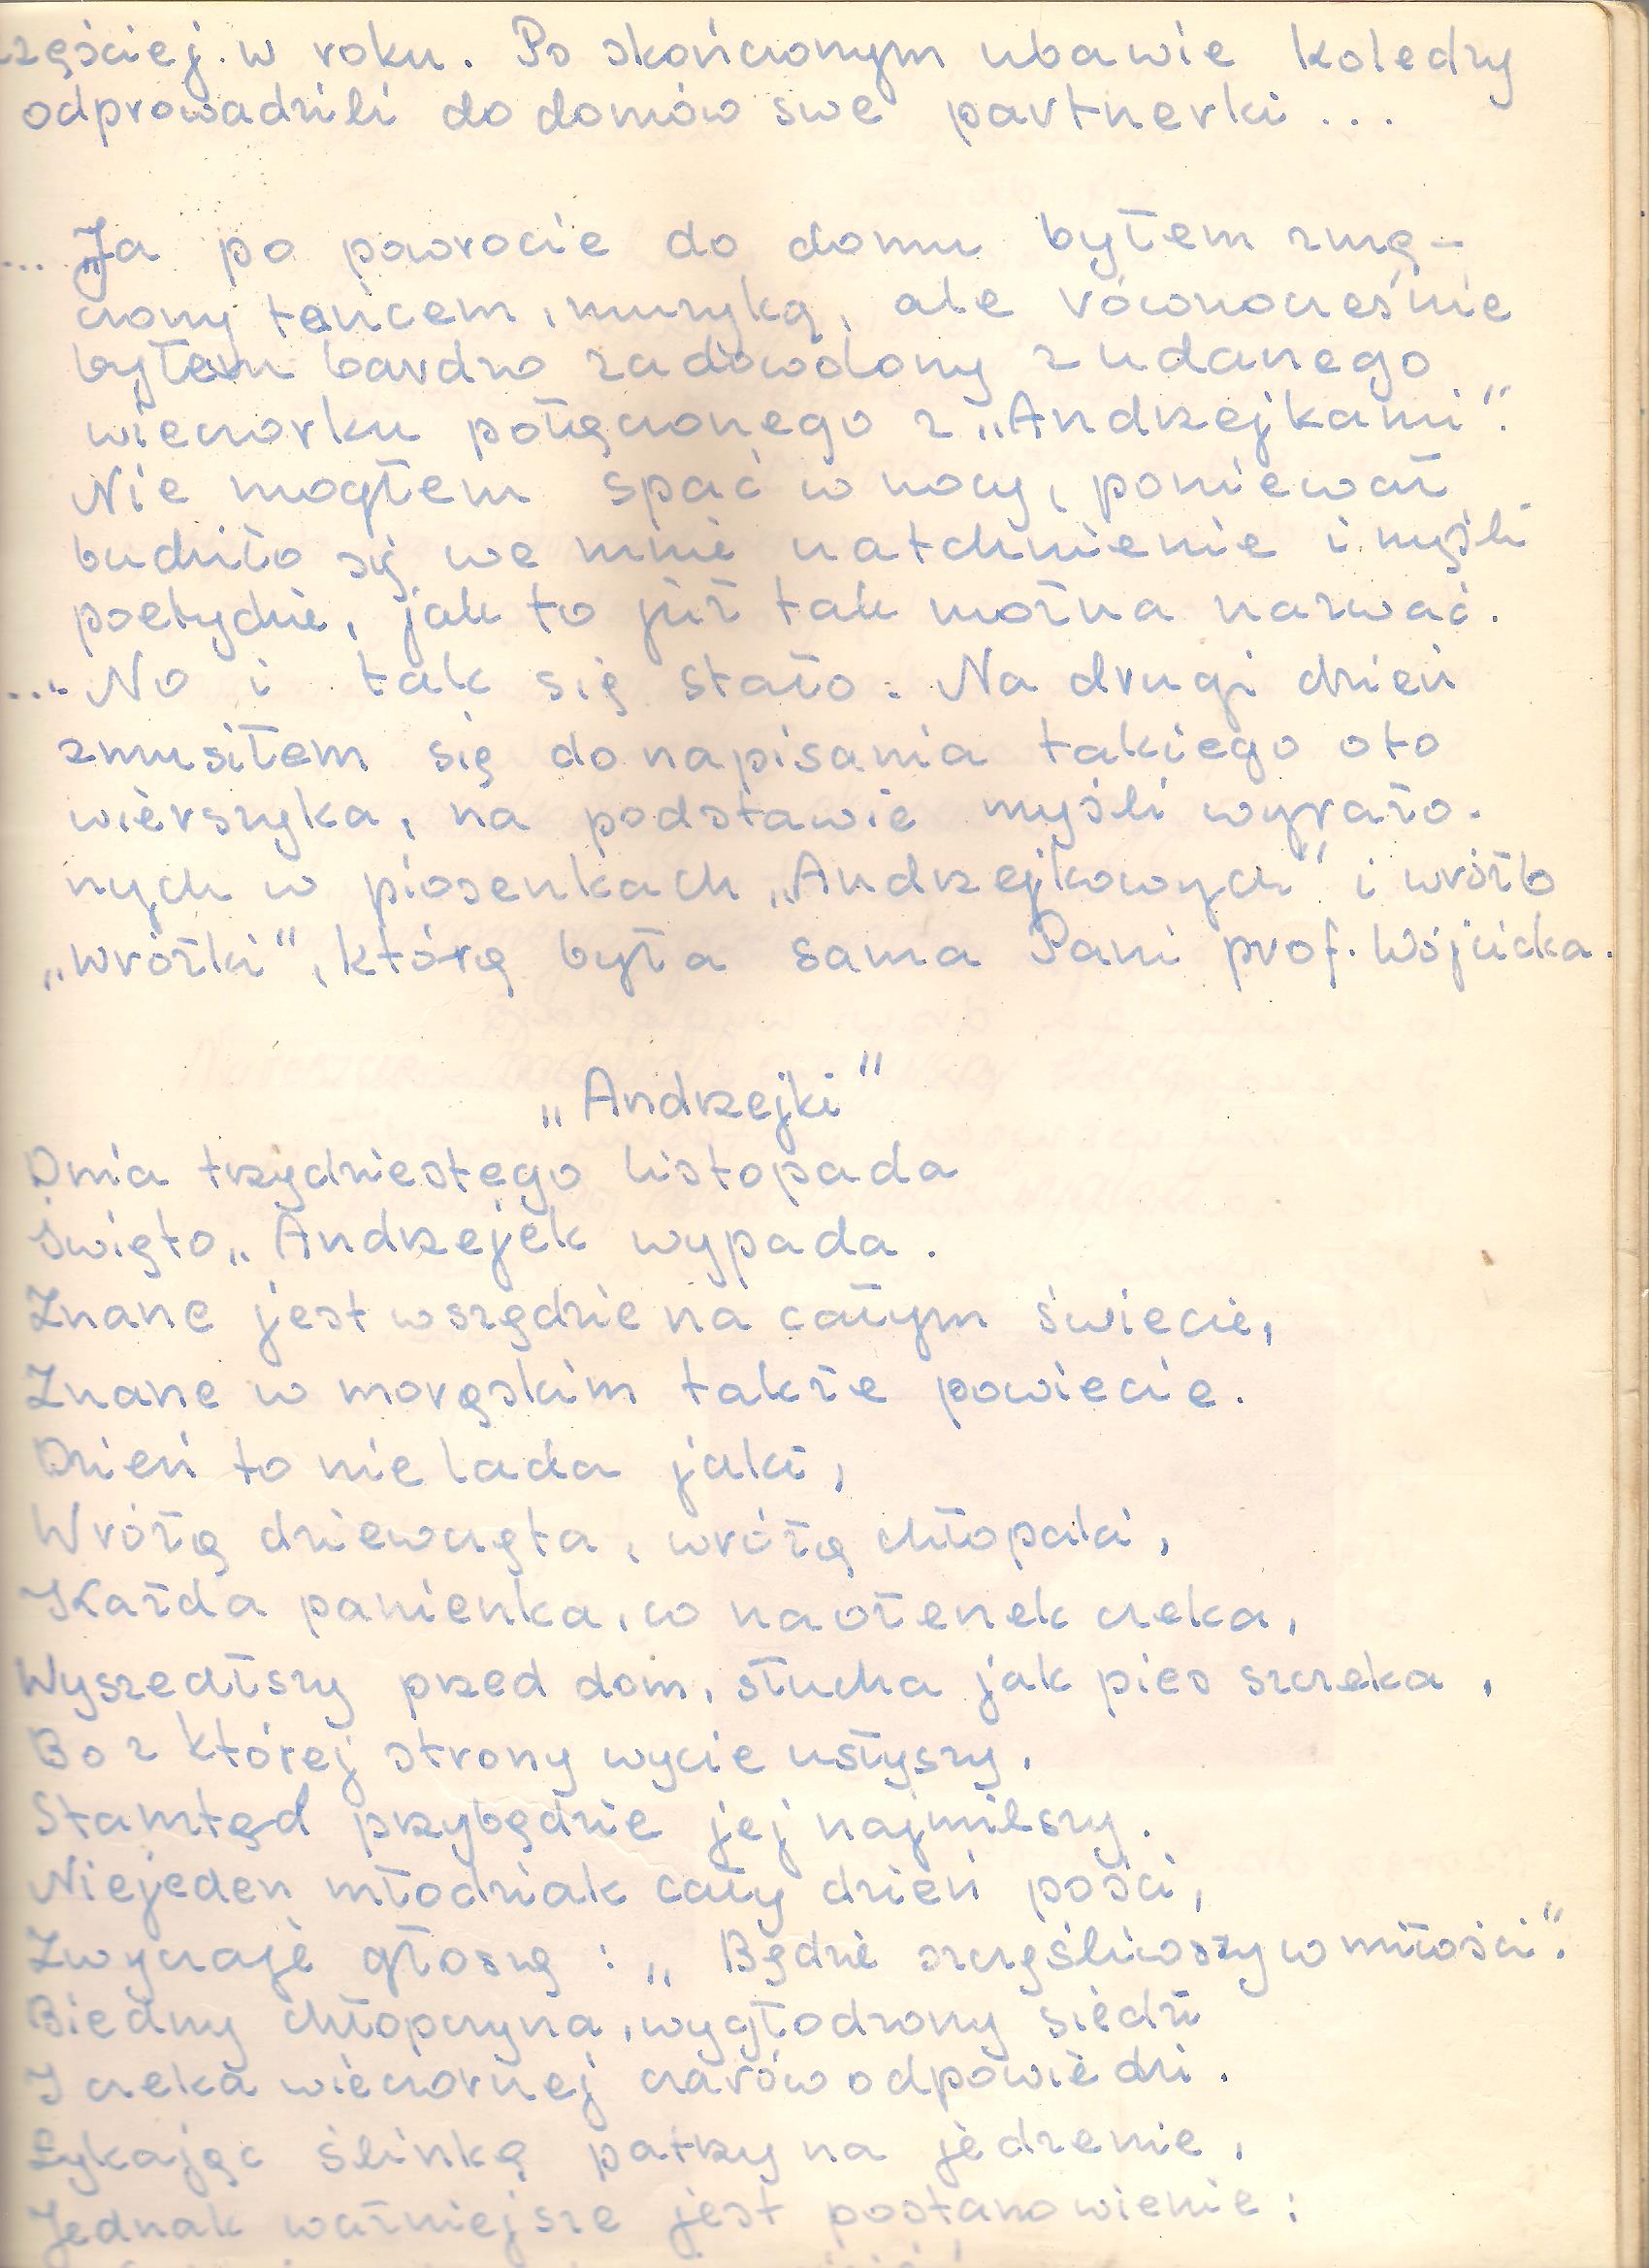 częściej w roku. Po skończonym ubawie koledzy
odprowadzili do domów swe partnerki...
... „Ja po powrocie do domu byłem zmę-
czony tańcem, muzyką, ale równocześnie
byłem bardzo zadowolony z udanego
wieczorku połączonego z „Andrzejkami”.
Nie mogłem spać w nocy, ponieważ
budziło się we mnie natchnienie i myśli
poetyckie, jak to już tak można nazwać.
... No i tak się stało. Na drugi dzień
zmusiłem się do napisania takiego oto
wierszyka, na podstawie myśli wyrażo-
nych w piosenkach „Andrzejkowych” i wróżb
„wróżki”, którą była sama Pani prof. Wójcicka.
„Andrzejki”
Dnia trzydziestego listopada
Święto „Andrzejek wypada.
Znane jest wszędzie na całym świecie,
Znane w morąskim także powiecie.
Dzień to nie lada jaki,
Wróżą dziewczęta, wróżą chłopaki,
Każda panienka, co na ożenek czeka,
Wyszedłszy przed dom, słucha jak pies szczeka,
Bo z której strony wycie usłyszy,
Stamtąd przybędzie jej najmilszy.
Niejeden młodziak cały dzień pości,
Zwyczaje głoszą: „Będzie szczęśliwszy w miłości”.
Biedny chłopczyna, wygłodzony siedzi
I czeka wieczornej czarów odpowiedzi.
Łykając ślinkę patrzy na jedzenie,
Jednak ważniejsze jest postanowienie: